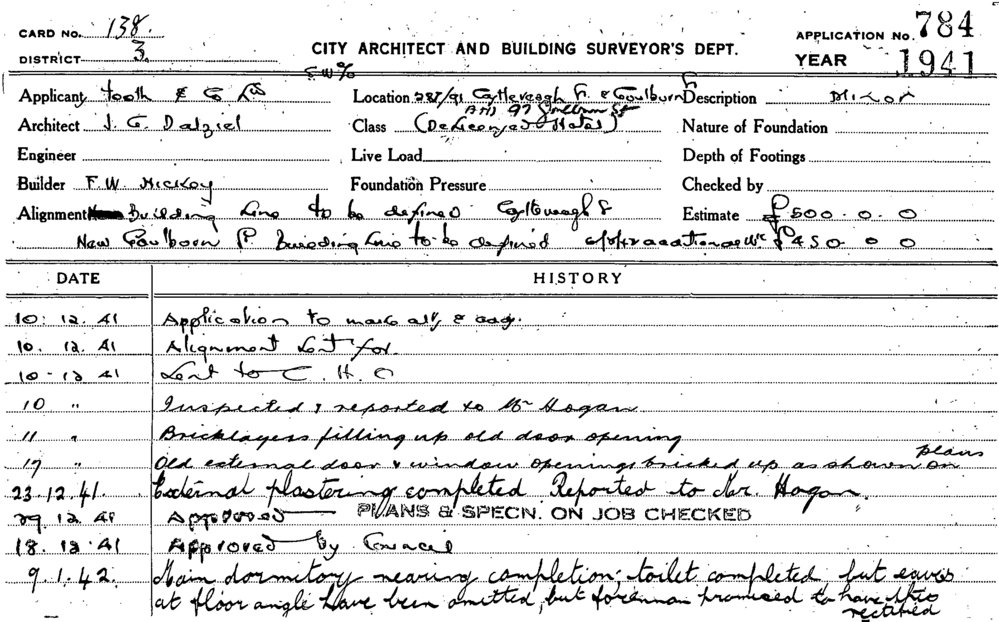 CARD NO. 138.
DISTRICT 3.
CITY ARCHITECT AND BUILDING SURVEYOR'S DEPT.
APPLICATION NO. 784
YEAR 1941
Applicant Tooth & Co Ltd
Location 287/91 & Goulburn St Description Minor
AND 97 Goulburn St
Architect J. G. Dalziel Class (Delicensed Hotel) Nature of Foundation
Engineer Live Load Depth of Footings
Builder F. W. Hickey Foundation Pressure Checked by
Alignment Building line to be defined Estimate £500.0.0
New Goulburn St. Building line to be defined £450 0 0
DATE HISTORY
10.12.41 Application to make alts & adds.
10.12.41 Alignment sent for.
10-12 41 Sent to C. H. O
10 " Inspected & reported to Mr Hogan
11 " Bricklayers filling up old door opening
17 " Old external door & window openings bricked up as shown on plans
23.12.41. External plastering completed Reported to Mr. Hogan.
29.12.41 Approved PLANS & SPECN. ON JOB CHECKED
18.12.41 Approved by Council
9.1.42. Main dormitory nearing completion; toilet completed, but
at floor angle have been omitted, but foreman promised to have this
rectified